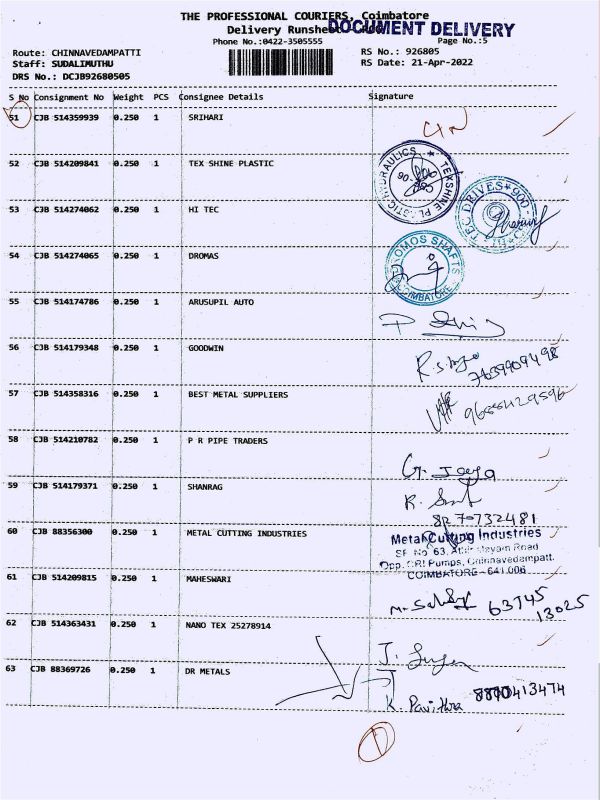 THE PROFESSIONAL COURIERS, Coimbatore
Delivery Runsheet
DOCUMENT DELIVERY
Phone No.:0422-3505555
Page No.:5
Route: CHINNAVEDAMPATTI
RS No.: 926805
Staff: SUDALIMUTHU
RS Date: 21-Apr-2022
DRS No.: DCJB92680505
S No Consignment No Weight PCS Consignee Details Signature
51 CJB 514359939 0.250 1 SRIHARI
52 CJB 514209841 0.250 1 TEX SHINE PLASTIC
HYDRAULICS * TEKSHINE PLASTIC
53 CJB 514274062 0.250 1 HI TEC
TEC DRIVES * 900
54 CJB 514274065 0.250 1 DROMAS
ROMOS SHAFTS
COIMBATORE
55 CJB 514174786 0.250 1 ARUSUPIL AUTO
56 CJB 514179348 0.250 1 GOODWIN
7639909498
57 CJB 514358316 0.250 1 BEST METAL SUPPLIERS
58 CJB 514210782 0.250 1 P R PIPE TRADERS
G. Jaya
59 CJB 514179371 0.250 1 SHANRAG
60 CJB 88356300 0.250 1 METAL CUTTING INDUSTRIES
Metal Cutting Industries
SF No 63, Road
Opp. CRI Pumps, Chinnavedampatt.
COIMBATORE - 641 006
61 CJB 514209815 0.250 1 MAHESWARI
63745
13025
62 CJB 514363431 0.250 1 NANO TEX 25278914
63 CJB 88369726 0.250 1 DR METALS
K. Pavithra
1